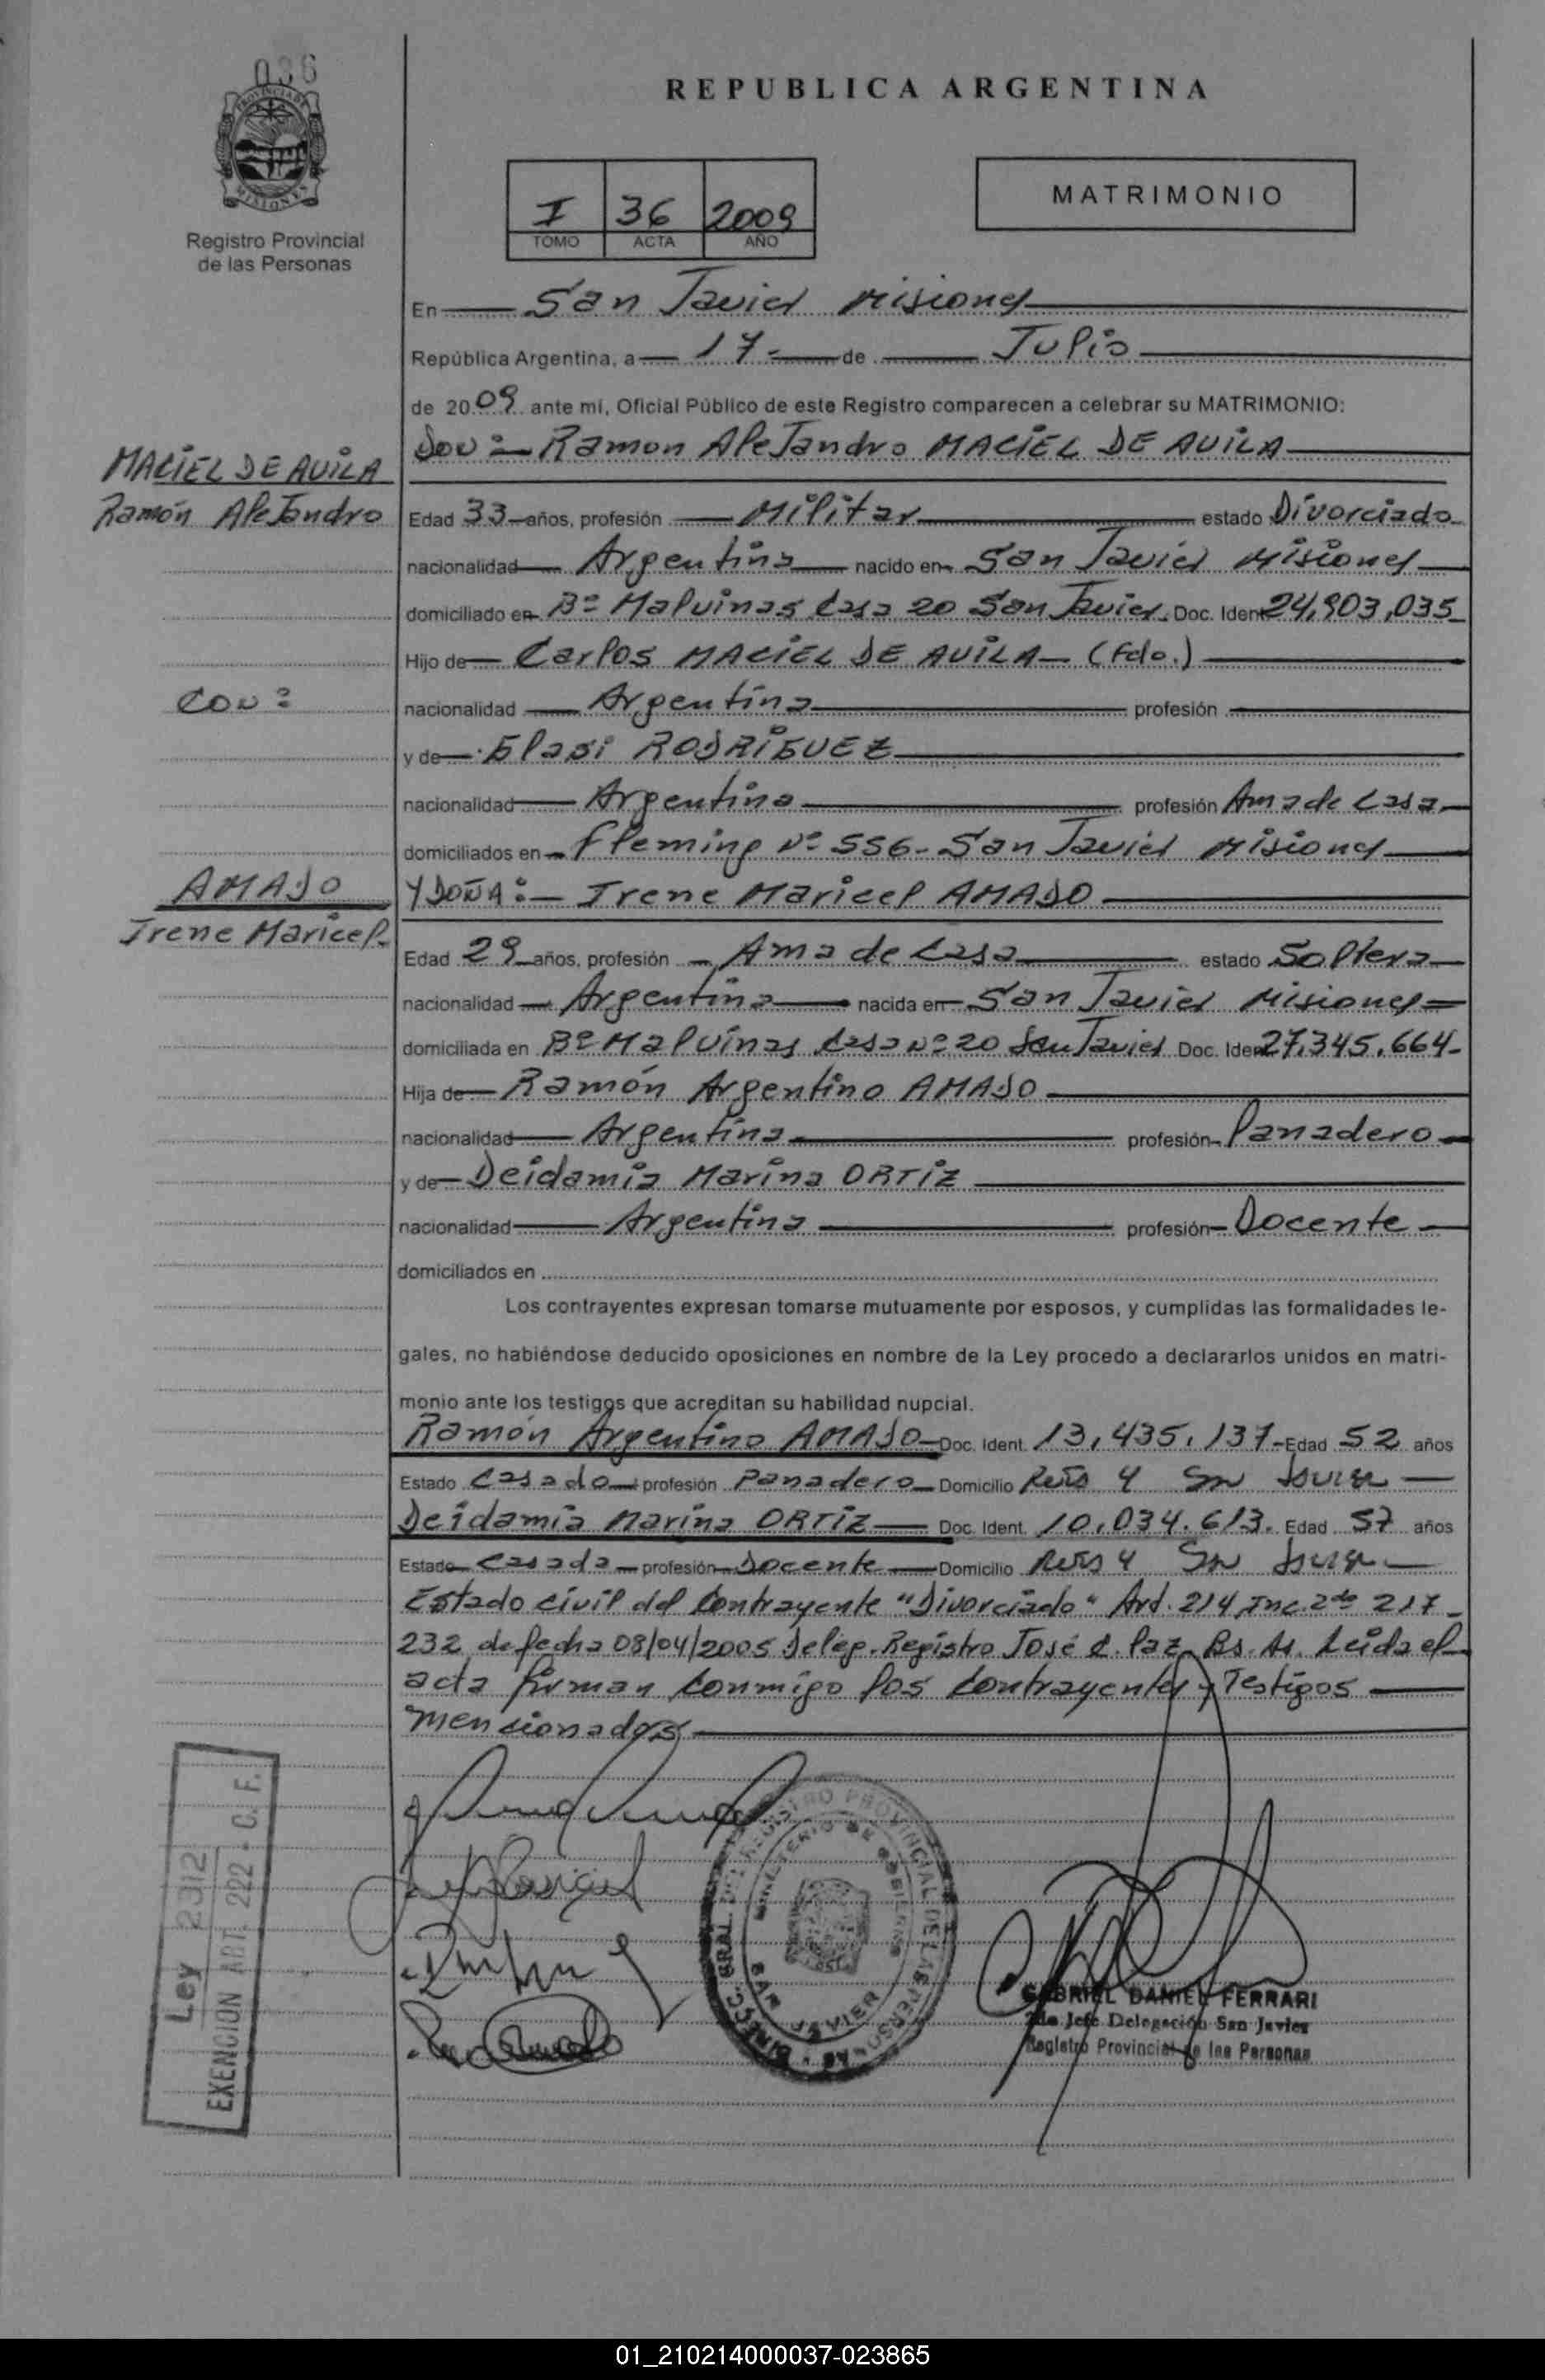 036
REPUBLICA ARGENTINA
PROVINCIA DE MISIONES
Registro Provincial
de las Personas
I 36 2009
TOMO ACTA AÑO
MATRIMONIO
En San Javier Misiones
República Argentina, a 17 de Julio
de 2009 ante mí, Oficial Público de este Registro comparecen a celebrar su MATRIMONIO:
MACIEL DE AVILA
Ramón Alejandro
Don: Ramon Alejandro MACIEL DE AVILA
Edad 33 años, profesión Militar estado Divorciado
nacionalidad Argentina nacido en San Javier Misiones
domiciliado en Bº Malvinas Casa 20 San Javier Doc. Ident 24,903,035
Hijo de Carlos MACIEL DE AVILA (Fdo.)
CON:
nacionalidad Argentina profesión
y de Elasi RODRIGUEZ
nacionalidad Argentina profesión Ama de Casa
domiciliados en Fleming Nº 556 - San Javier Misiones
AMADO
Irene Maricel
Y DOÑA: Irene Maricel AMADO
Edad 29 años, profesión Ama de Casa estado Soltera
nacionalidad Argentina nacida en San Javier Misiones
domiciliada en Bº Malvinas Casa Nº 20 San Javier Doc. Iden 27.345.664
Hija de Ramón Argentino AMADO
nacionalidad Argentina profesión Panadero
y de Deidamia Marina ORTIZ
nacionalidad Argentina profesión Docente
domiciliados en
Los contrayentes expresan tomarse mutuamente por esposos, y cumplidas las formalidades le-
gales, no habiéndose deducido oposiciones en nombre de la Ley procedo a declararlos unidos en matri-
monio ante los testigos que acreditan su habilidad nupcial.
Ramón Argentino AMADO Doc. Ident. 13,435,137 Edad 52 años
Estado Casado profesión Panadero Domicilio
Deidamia Marina ORTIZ Doc. Ident. 10,034.613. Edad 57 años
Estado Casada profesión Docente Domicilio
Estado civil del Contrayente "Divorciado" Art. 214 Inc. 2do 217
232 de fecha 08/04/2005 Deleg. Registro José C. Paz Bs. As. Leida el
acta firman conmigo los contrayentes y Testigos
mencionados
Ley 2312
EXENCION ART. 222 - C. F.
DIRECC. GRAL. DEL REGISTRO PROVINCIAL DE LAS PERSONAS
MINISTERIO DE GOBIERNO
SAN JAVIER
GABRIEL DANIEL FERRARI
2do Jefe Delegación San Javier
Registro Provincial de las Personas
01_210214000037-023865